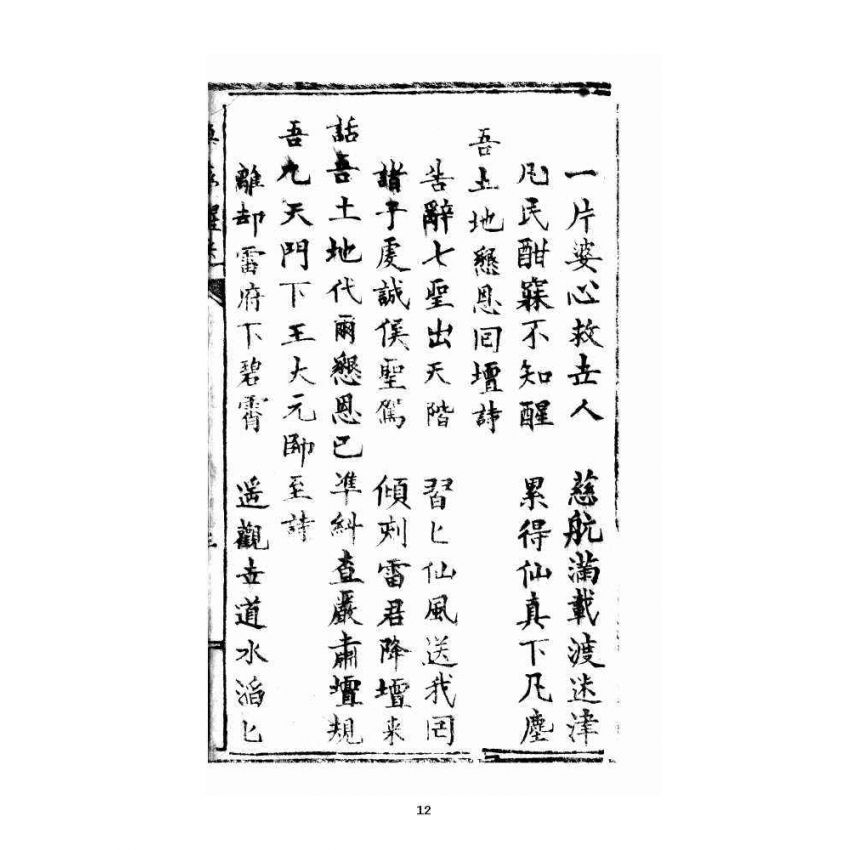 一片婆心救世人　慈航滿載渡迷津
凡民酣寐不知醒　累得仙真下凡塵
吾土地懇恩回壇詩
苦辭七聖出天階　習匕仙風送我回
諸子虔誠候聖駕　傾刻雷君降壇来
話吾土地代爾懇恩已準糾查嚴肅壇規
吾九天門下王大元帥至詩
離却雷府下碧霄　遥觀世道水滔匕
三
12